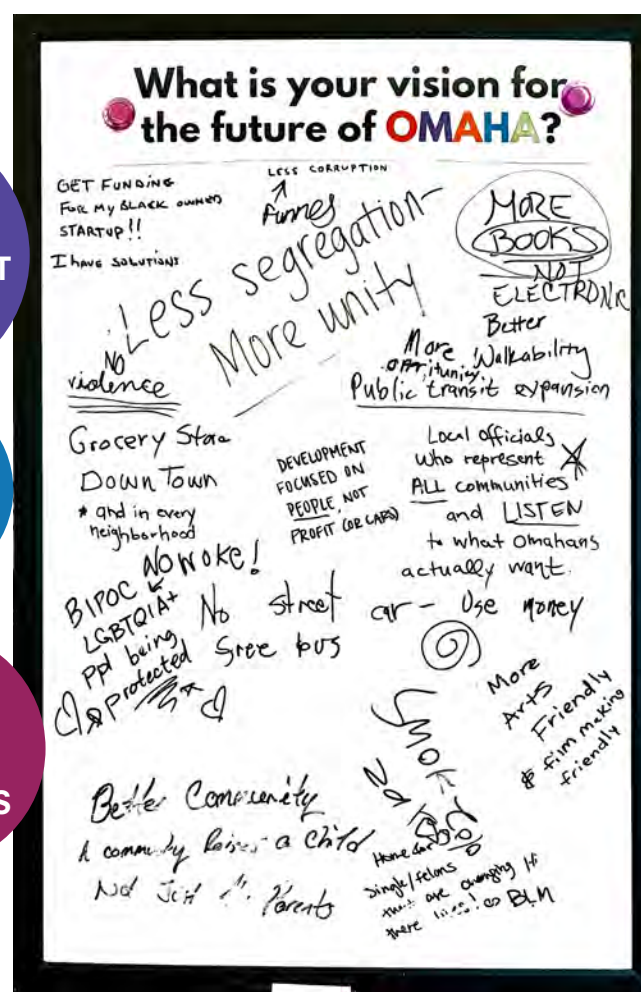 What is your vision for
the future of OMAHA?
GET FUNDING
FOR MY BLACK OWNED
STARTUP!!
I HAVE SOLUTIONS
LESS CORRUPTION
Funnes
MORE
BOOKS
NOT
ELECTRONIC
Less segregation
More unity!
NO
violence
Better
Walkability
More
opportunity
Public transit expansion
Grocery Store
DownTown
* and in every
neighborhood
DEVELOPMENT
FOCUSED ON
PEOPLE, NOT
PROFIT (OR CARS)
Local officials
who represent
ALL communities
and LISTEN
to what omahans
actually want.
NO WOKE!
BIPOC
LGBTQIA+
ppl being
protected
No street car - Use money
bus
More
Arts
Friendly
& film making
friendly
Better Community
A community Raises a Child
Not Just Parents
Home
single/felons
that are changing
there BLM
Hi
T
S